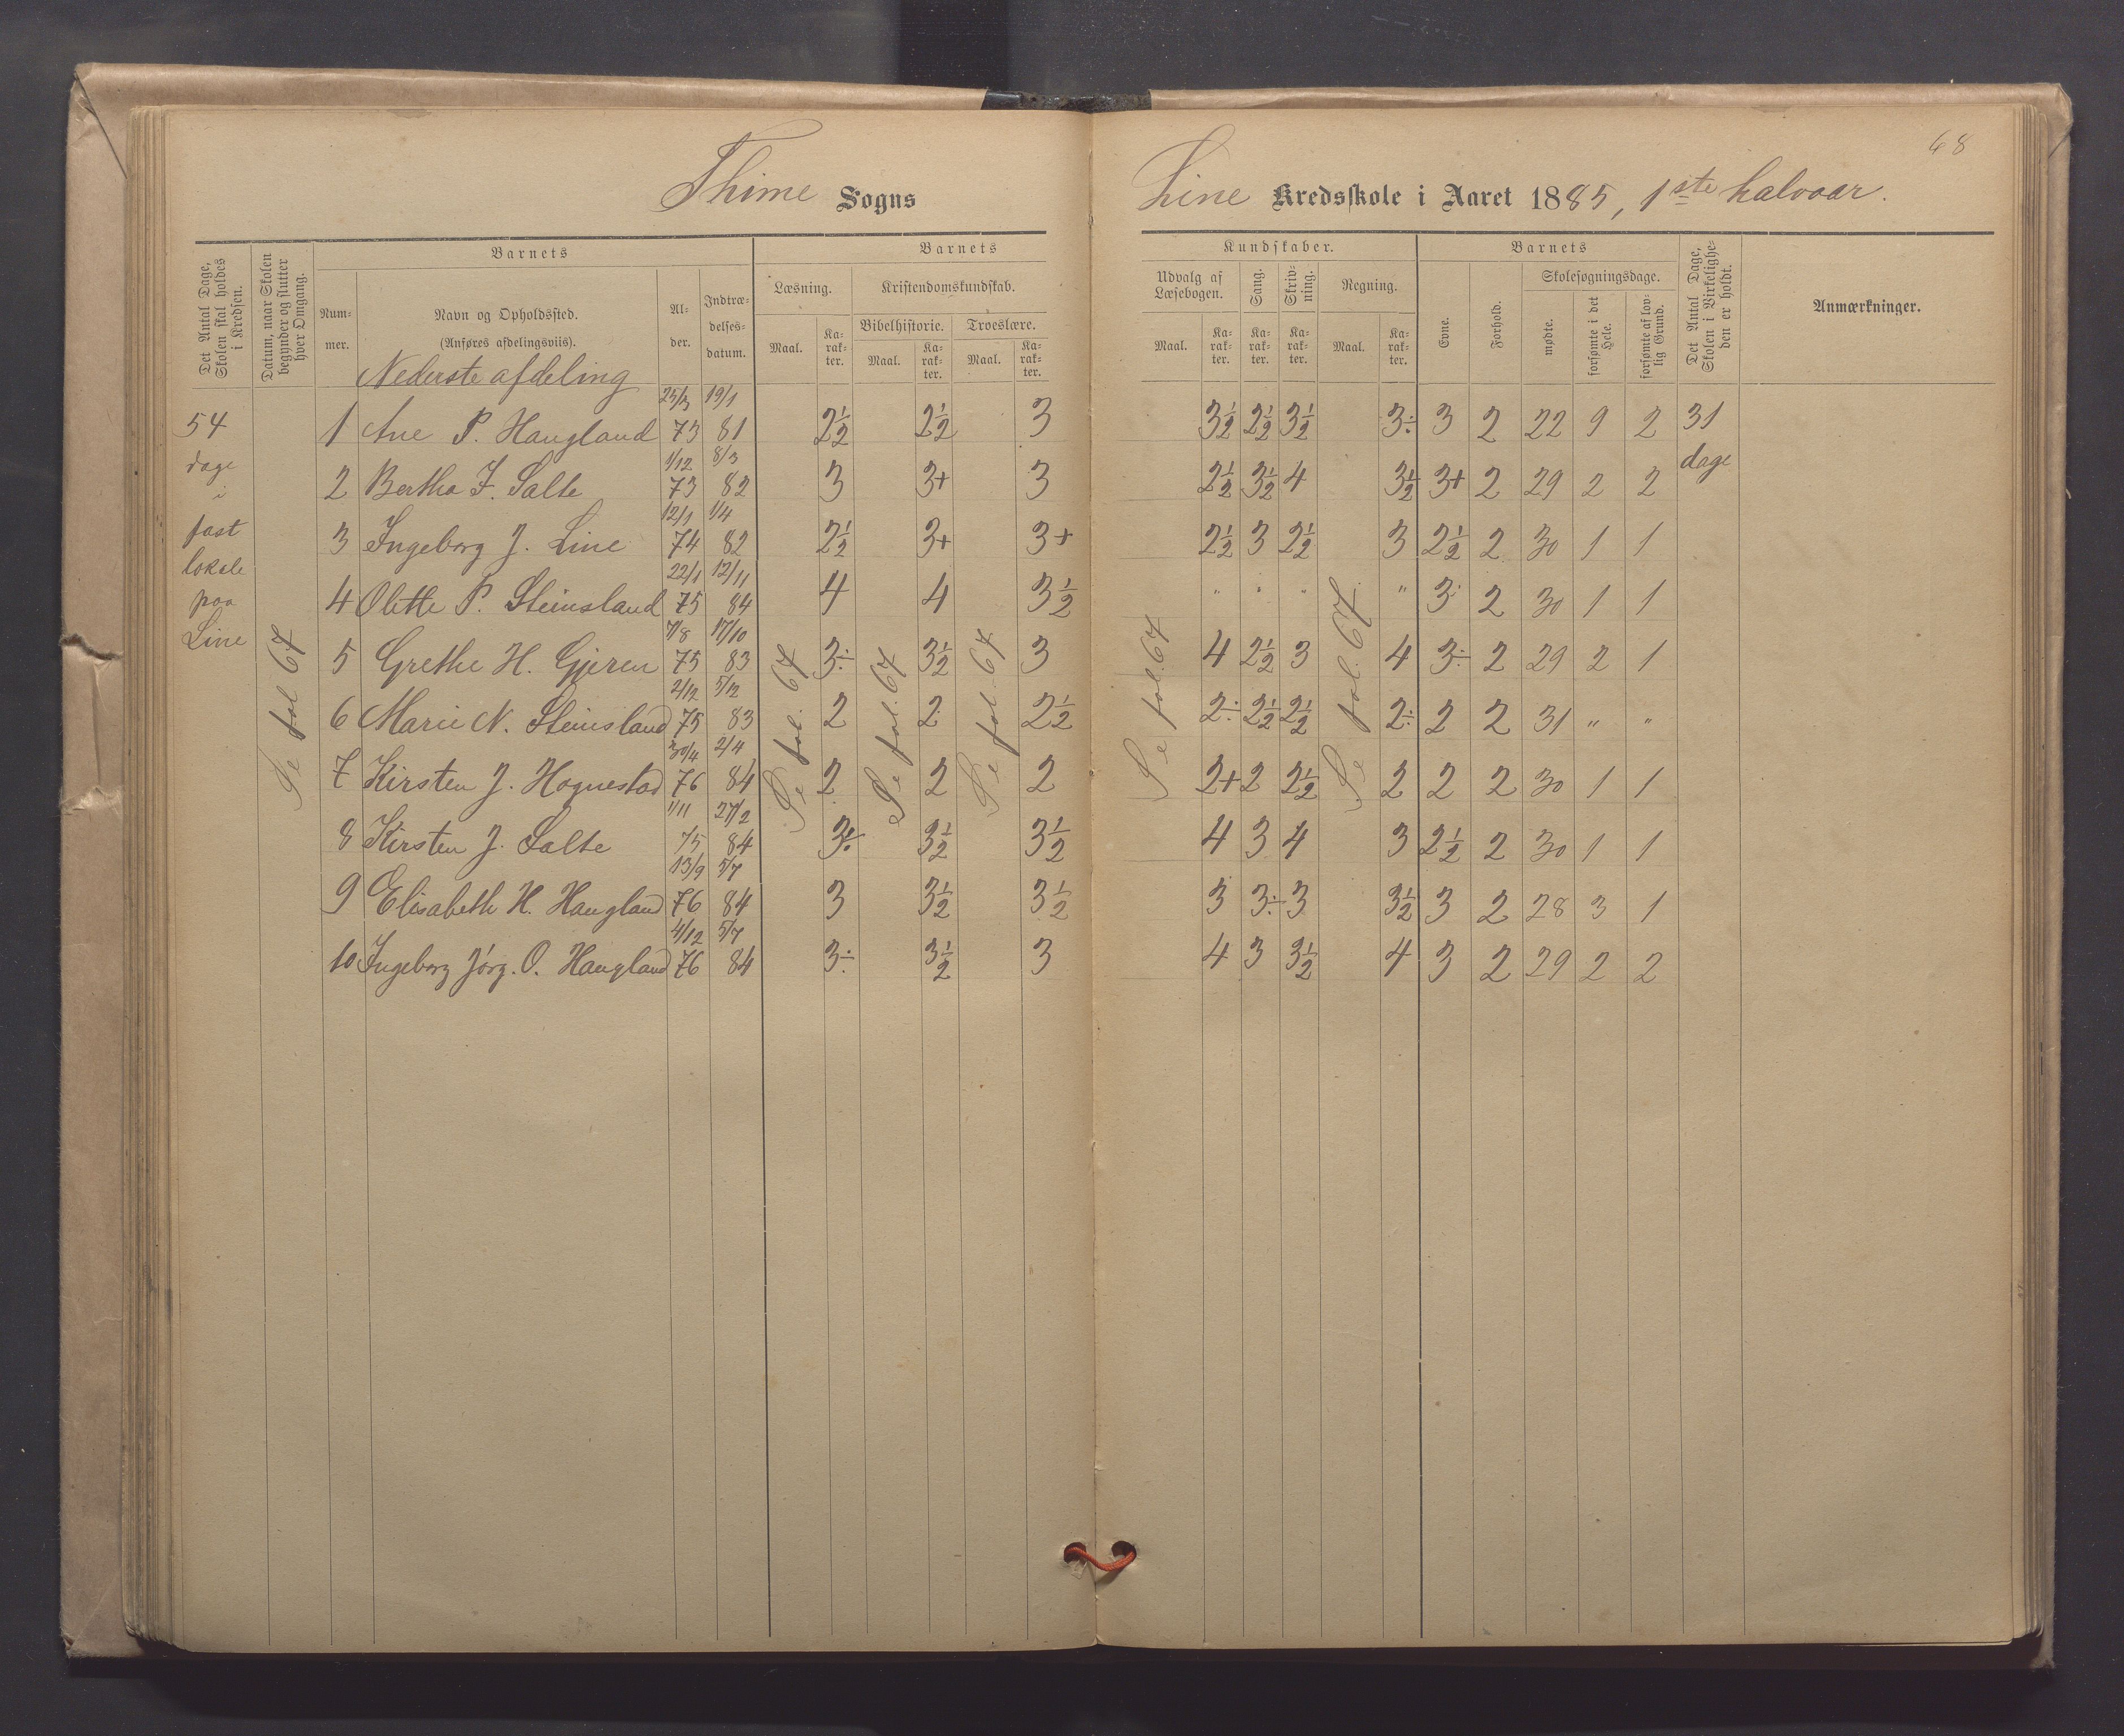 68
Thime Sogns Line Kredsskole i Aaret 1885, 1ste halvaar.
Det Antal Dage, Skolen skal holdes i Kredsen.
Datum, naar Skolen begynder og slutter hver Omgang.
Barnets
Num-mer.
Navn og Opholdssted.
(Anføres afdelingsviis).
Al-der.
Indtræ-delses-datum.
Barnets
Læsning.
Maal.
Ka-rak-ter.
Kristendomskundskab.
Bibelhistorie.
Maal.
Ka-rak-ter.
Troeslære.
Maal.
Ka-rak-ter.
Kundskaber.
Udvalg af Læsebogen.
Maal.
Ka-rak-ter.
Sang.
Ka-rak-ter.
Skriv-ning.
Ka-rak-ter.
Regning.
Maal.
Ka-rak-ter.
Barnets
Evne.
Forhold.
Skolesøgningsdage.
mødte.
forsømte i det Hele.
forsømte af lov-lig Grund.
Det Antal Dage, Skolen i Virkelighe-den er holdt.
Anmærkninger.
Nederste afdeling
54 dage i fast lokale paa Line
Se fol. 67
Se fol. 67
Se fol. 67
Se fol. 67
Se fol. 67
Se fol. 67
31 dage
1 Ane P. Haugland 25/3 73 19/1 81 2½ 2½ 3 3½ 2½ 3½ 3÷ 3 2 22 9 2
2 Bertha F. Salte 1/12 73 8/3 82 3 3+ 3 2½ 3½ 4 3½ 3+ 2 29 2 2
3 Ingeborg J. Line 12/1 74 1/4 82 2½ 3+ 3+ 2½ 3 2½ 3 2½ 2 30 1 1
4 Olette P. Steinsland 22/1 75 12/11 84 4 4 3½ " " " " 3÷ 2 30 1 1
5 Grethe H. Gjeren 7/8 75 17/10 83 3÷ 3½ 3 4 2½ 3 4 3÷ 2 29 2 1
6 Marie N. Steinsland 2/12 75 5/12 83 2 2 2½ 2÷ 2½ 2½ 2÷ 2 2 31 " "
7 Kirsten J. Hognestad 30/4 76 2/4 84 2 2 2 2+ 2 2½ 2 2 2 30 1 1
8 Kirsten J. Salte 1/11 75 27/2 84 3÷ 3½ 3½ 4 3 4 3 2½ 2 30 1 1
9 Elisabeth H. Haugland 13/9 76 5/7 84 3 3½ 3½ 3 3÷ 3 3½ 3 2 28 3 1
10 Ingeborg Jørg. O. Haugland 4/12 76 5/7 84 3÷ 3½ 3 4 3 3½ 4 3 2 29 2 2